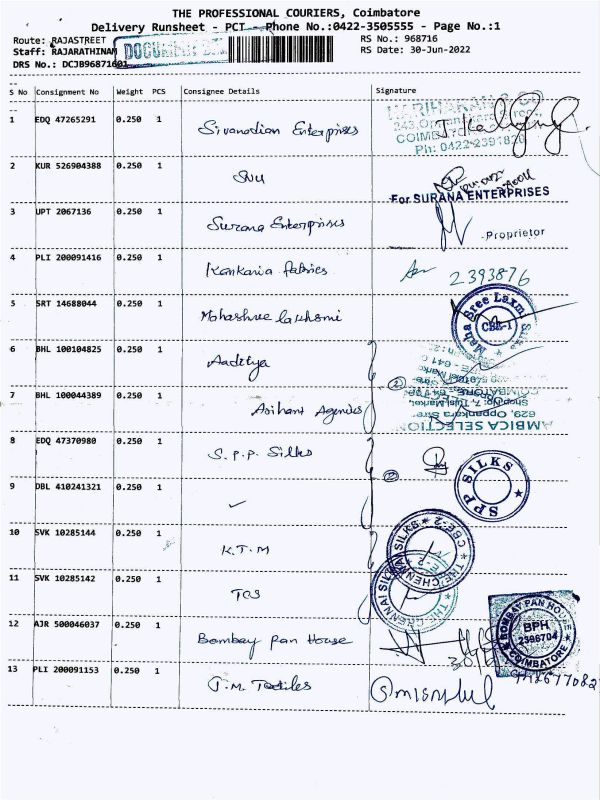 THE PROFESSIONAL COURIERS, Coimbatore
Delivery Runsheet - PCT - Phone No.:0422-3505555 - Page No.:1
Route: RAJASTREET RS No.: 968716
Staff: RAJARATHINAM RS Date: 30-Jun-2022
DRS No.: DCJB96871601
DOCUMENT
S No Consignment No Weight PCS Consignee Details Signature
1 EDQ 47265291 0.250 1 Sivanadian Enterprises
HARIHARAN & CO
COIMBATORE
Ph: 0422-2391820
2 KUR 526904388 0.250 1
For SURANA ENTERPRISES
3 UPT 2067136 0.250 1 Surana Enterprises
Proprietor
4 PLI 200091416 0.250 1 Kankaria fabrics 2393876
5 SRT 14688044 0.250 1 Mahashree lakhsmi
Maha Sree Laxmi Silks
CBE-1
6 BHL 100104825 0.250 1 Aaditya
7 BHL 100044389 0.250 1 Arihant Agencies
629, Oppankara Stre
Shop No: 7, Tulsi Market,
COIMBATORE
AMBICA SELECTION
8 EDQ 47370980 0.250 1 S.P.P. Silks
SPP SILKS
9 DBL 410241321 0.250 1 ✓
10 SVK 10285144 0.250 1 K.T.M
THE CHENNAI SILKS CBE-2
11 SVK 10285142 0.250 1 TCS
THE CHENNAI SILKS
12 AJR 500046037 0.250 1 Bombay Pan House
BOMBAY PAN HOUSE
BPH
2396704
COIMBATORE
13 PLI 200091153 0.250 1 T.M. Textiles